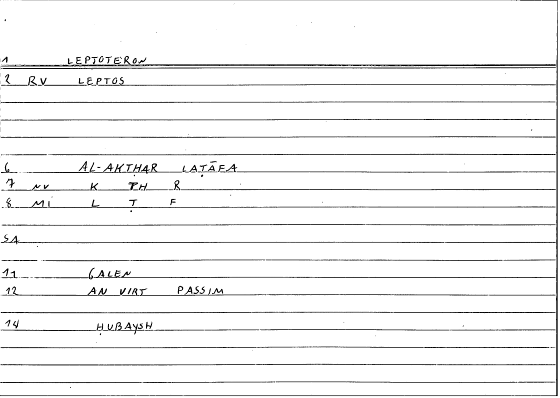 1 LEPTOTERON
2 RV LEPTOS
6 AL-AKṬHAR LAṬĀFA
7 NV K TH R
8 MI L Ṭ F
SA
11 GALEN
12 AN VIRT PASSIM
14 ḤUBAYSH